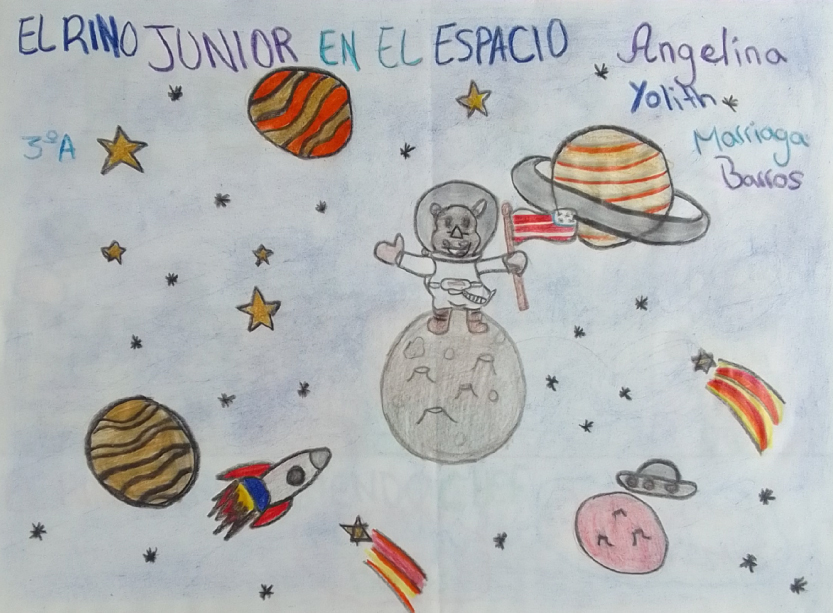 EL RINO JUNIOR EN EL ESPACIO
Angelina
Yolith
Marriaga
Barros
3°A